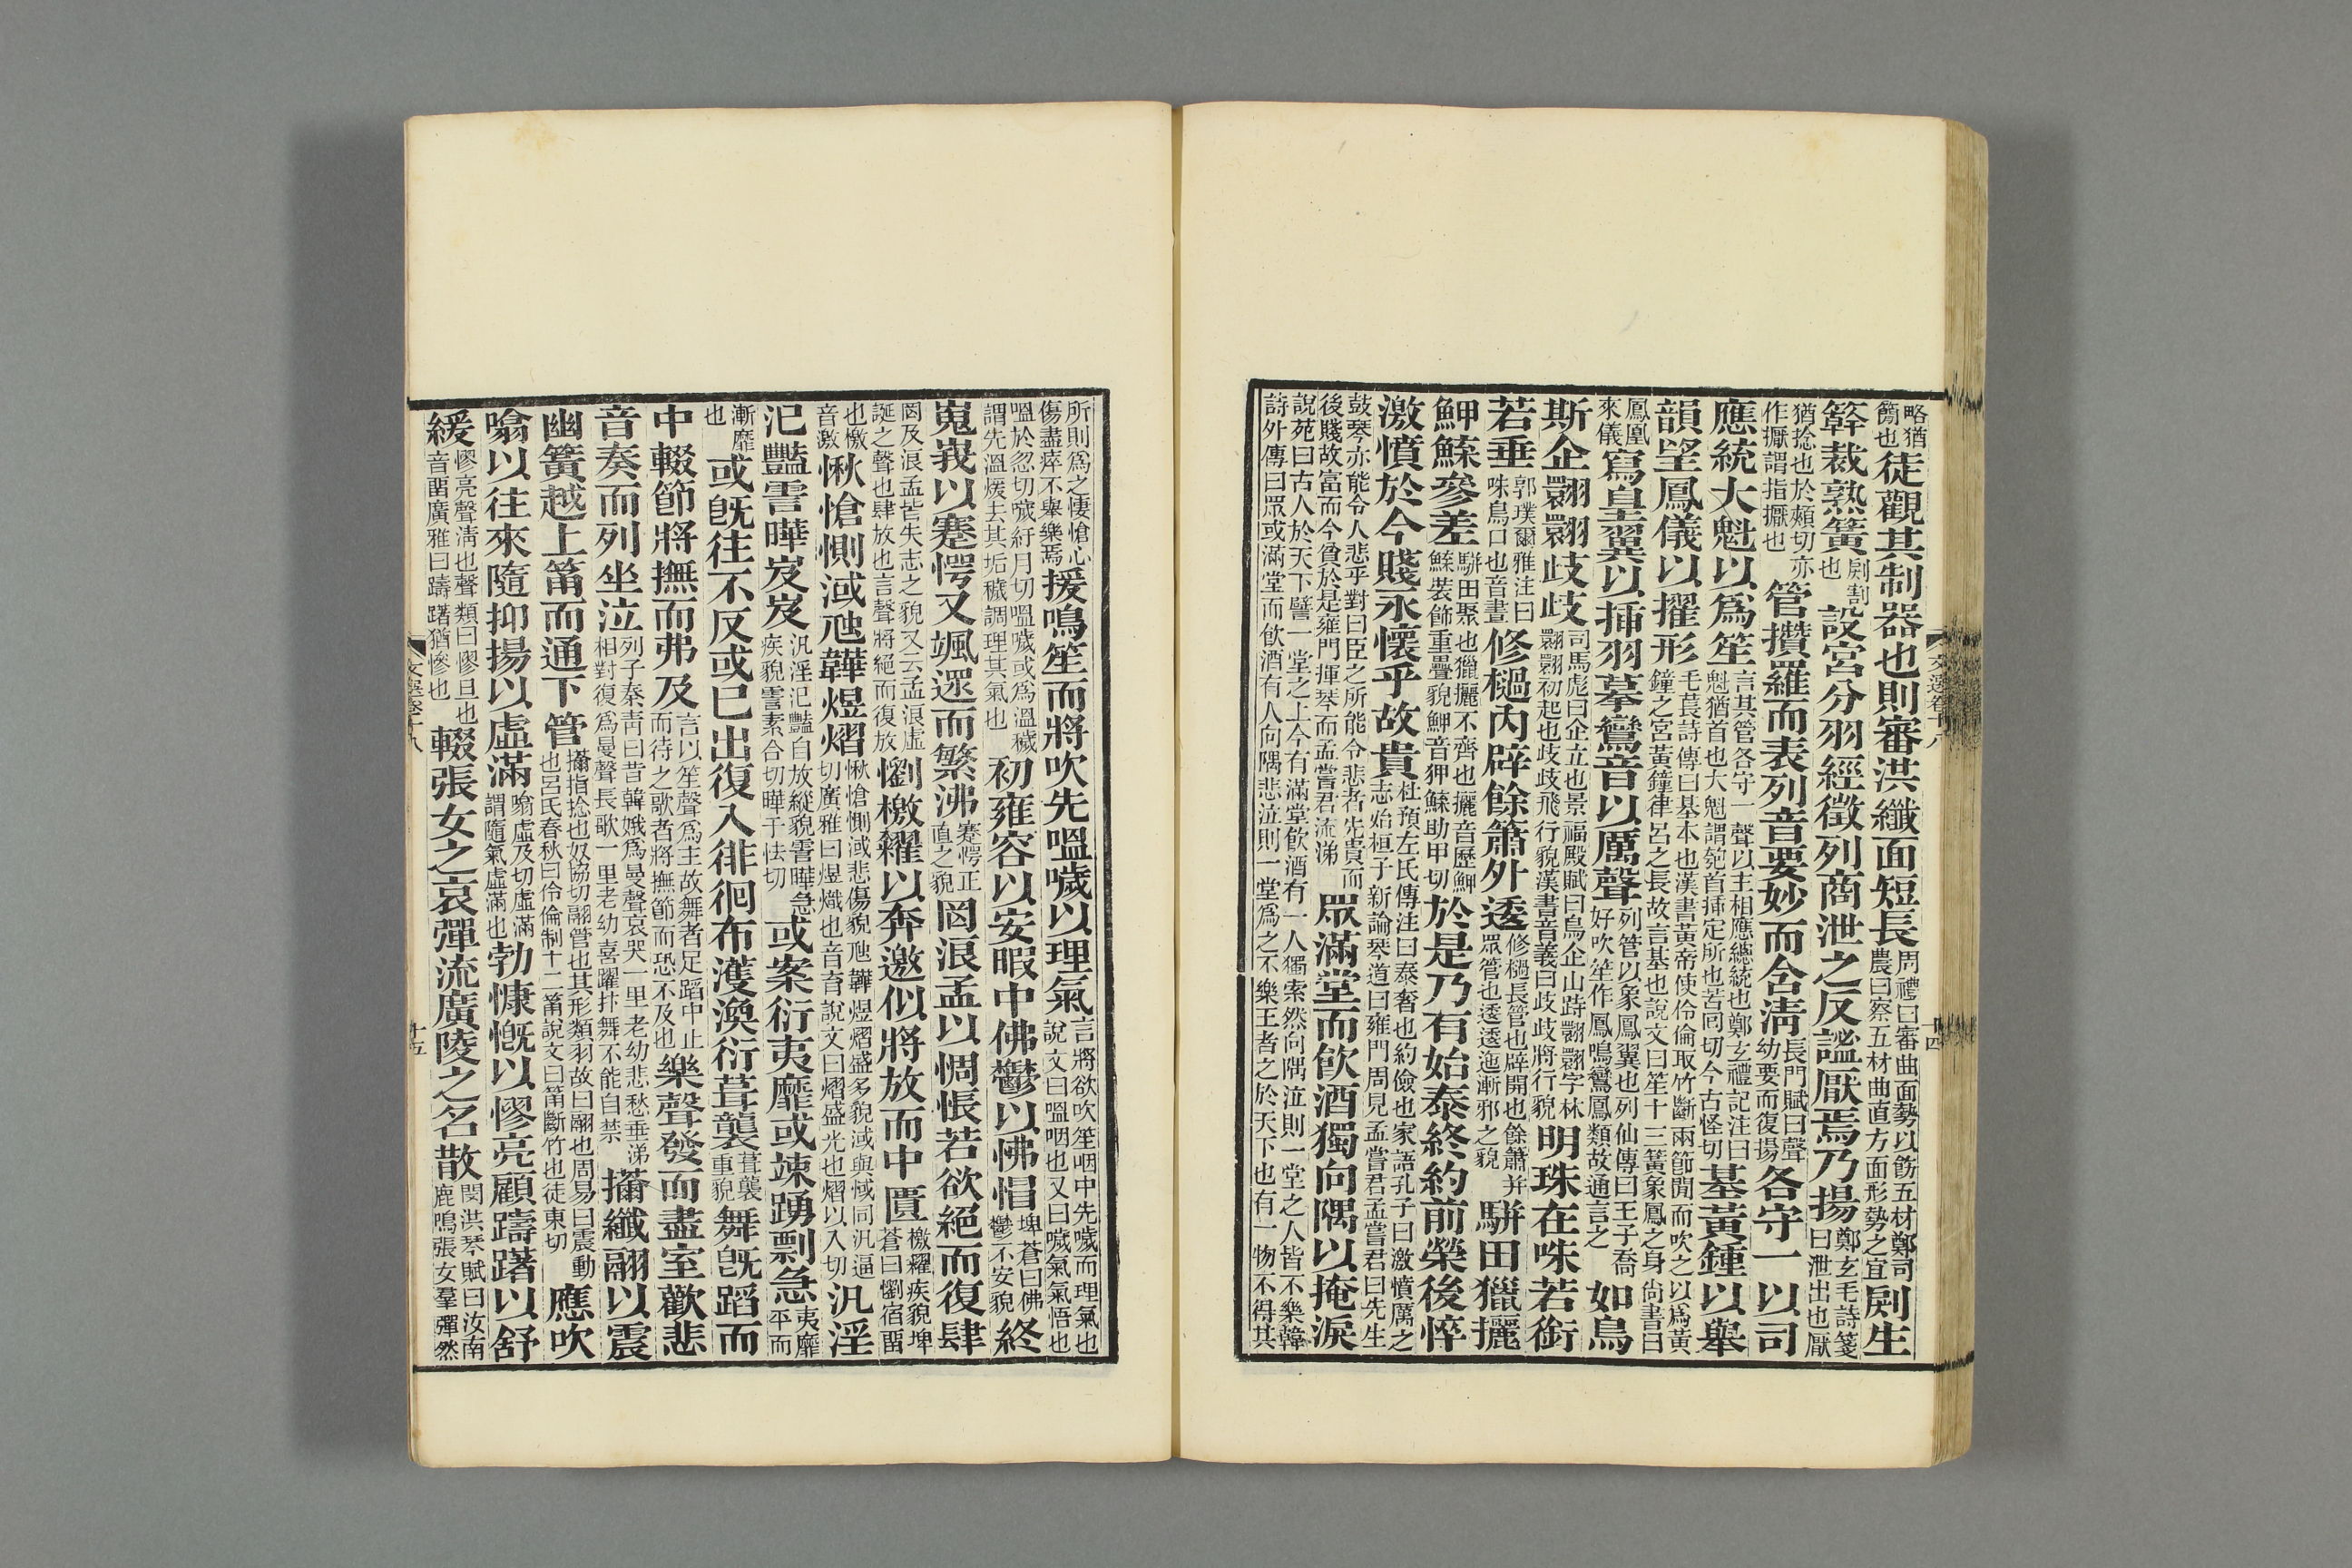 略猶簡也徒觀其制器也則審洪纖面短長周禮曰審曲面勢以飭五材鄭司農曰察五材曲直方面形勢之宜剫生
簳裁熟簧剫割也設宮分羽經徵列商泄之反謐厭焉乃揚鄭玄毛詩箋曰泄出也厭
猶捻也於頰切亦作擪謂指擪也管攢羅而表列音要妙而含清長門賦曰聲幼要而復揚各守一以司
應統大魁以爲笙言其管各守一聲以主相應總統也鄭玄禮記注曰魁猶首也大魁謂匏首插定所也苦回切今古怪切基黃鍾以舉
韻望鳳儀以擢形毛萇詩傳曰基本也漢書黃帝使伶倫取竹斷兩節間而吹之以爲黃鐘之宮黃鐘律呂之長故言基也說文曰笙十三簧象鳳之身尙書曰
鳳凰來儀寫皇翼以插羽摹鸞音以厲聲列管以象鳳翼也列仙傳曰王子喬好吹笙作鳳鳴鸞鳳類故通言之如鳥
斯企翾翾歧歧司馬彪曰企立也景福殿賦曰鳥企山跱翾翾字林翾翾初起也歧歧飛行貌漢書音義曰歧歧將行貌明珠在咮若銜
若垂郭璞爾雅注曰咮鳥口也音晝修檛內辟餘簫外逶修檛長管也辟開也餘簫并眾管也逶逶迤漸邪之貌駢田獵攦
魻鰈參差駢田聚也獵攦不齊也攦音歷魻鰈裝飾重疊貌魻音狎鰈助甲切於是乃有始泰終約前榮後悴
激憤於今賤永懷乎故貴杜預左氏傳注曰泰奢也約儉也家語孔子曰激憤厲之志始桓子新論琴道曰雍門周見孟嘗君孟嘗君曰先生
鼓琴亦能令人悲乎對曰臣之所能令悲者先貴而後賤故富而今貧於是雍門揮琴而孟嘗君流涕眾滿堂而飮酒獨向隅以掩淚
說苑曰古人於天下譬一堂之上今有滿堂飮酒有一人獨索然向隅泣則一堂之人皆不樂韓詩外傳曰眾或滿堂而飮酒有人向隅悲泣則一堂爲之不樂王者之於天下也有一物不得其
文選卷十八
十四
所則爲之悽愴心傷盡瘁不舉樂焉援鳴笙而將吹先嗢噦以理氣言將欲吹笙咽中先噦而理氣也說文曰嗢咽也又曰噦氣氣悟也
嗢於忽切噦紆月切嗢噦或爲溫穢謂先溫煖去其垢穢調理其氣也初雍容以安暇中佛鬱以怫㥜埤蒼曰佛鬱不安貌終
嵬峩以蹇愕又颯遝而繁沸蹇愕正直之貌罔浪孟以惆悵若欲絕而復肆
罔及浪孟皆失志之貌又云孟浪虛誕之聲也肆放也言聲將絕而復放懰檄糴以奔邀似將放而中匱檄糴疾貌埤蒼曰懰宿留
也檄音激愀愴惻淢虺韡煜熠愀愴惻淢悲傷貌虺韡煜熠盛多貌淢與惐同汎逼切廣雅曰煜熾也音育說文曰熠盛光也熠以入切汎淫
氾豔霅曄岌岌汎淫氾豔自放縱貌霅曄急疾貌霅素合切曄于怯切或案衍夷靡或竦踴剽急夷靡平而
漸靡也或旣往不反或已出復入徘徊布濩渙衍葺襲葺襲重貌舞旣蹈而
中輟節將撫而弗及言以笙聲爲主故舞者足蹈中止而待之歌者將撫節而恐不及也樂聲發而盡室歡悲
音奏而列坐泣列子秦靑曰昔韓娥爲曼聲哀哭一里老幼悲愁垂涕相對復爲曼聲長歌一里老幼喜躍抃舞不能自禁擪纖翮以震
幽簧越上筩而通下管擪指捻也奴協切翮管也其形類羽故曰翮也周易曰震動也呂氏春秋曰伶倫制十二筩說文曰筩斷竹也徒東切應吹
噏以往來隨抑揚以虛滿噏虛及切虛滿謂隨氣虛滿也勃慷慨以憀亮顧躊躇以舒
緩憀亮聲淸也聲類曰憀且也音留廣雅曰躊躇猶㣼也輟張女之哀彈流廣陵之名散閔洪琴賦曰汝南鹿鳴張女羣彈然
文選卷十八
十五